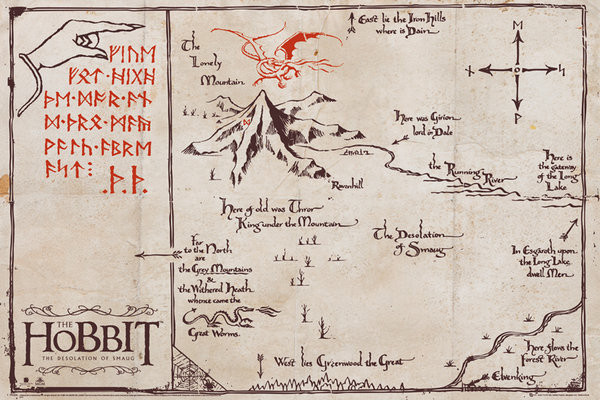 ᚠᛁᚢᛖ
ᚠᛟᛏ·ᚻᛁᚷᚻ
ᚦᛖ·ᛞᚩᚱ·ᚪᚾ
ᛞ·ᚦᚱᛟ·ᛗᚪᚣ
ᚹᚪᛚᚳ·ᚪᛒᚱᛖ
ᚪᛋᛏ⁝
.ᚦ.ᚦ.
The
Lonely
Mountain
East lie the Iron Hills
where is Dain
Here was Girion
lord in Dale
the Running River
Here is
the gateway
of the Long
Lake
Ravenhill
Here of old was Thror
King under the Mountain
The Desolation
of Smaug
In Esgaroth upon
the Long Lake
dwell Men
Far
to the North
are
the Grey Mountains
&
the Withered Heath
whence came the
Great Worms
West lies Greenwood the Great
Here flows the
Forest River
Elvenking
THE
HOBBIT
THE DESOLATION OF SMAUG